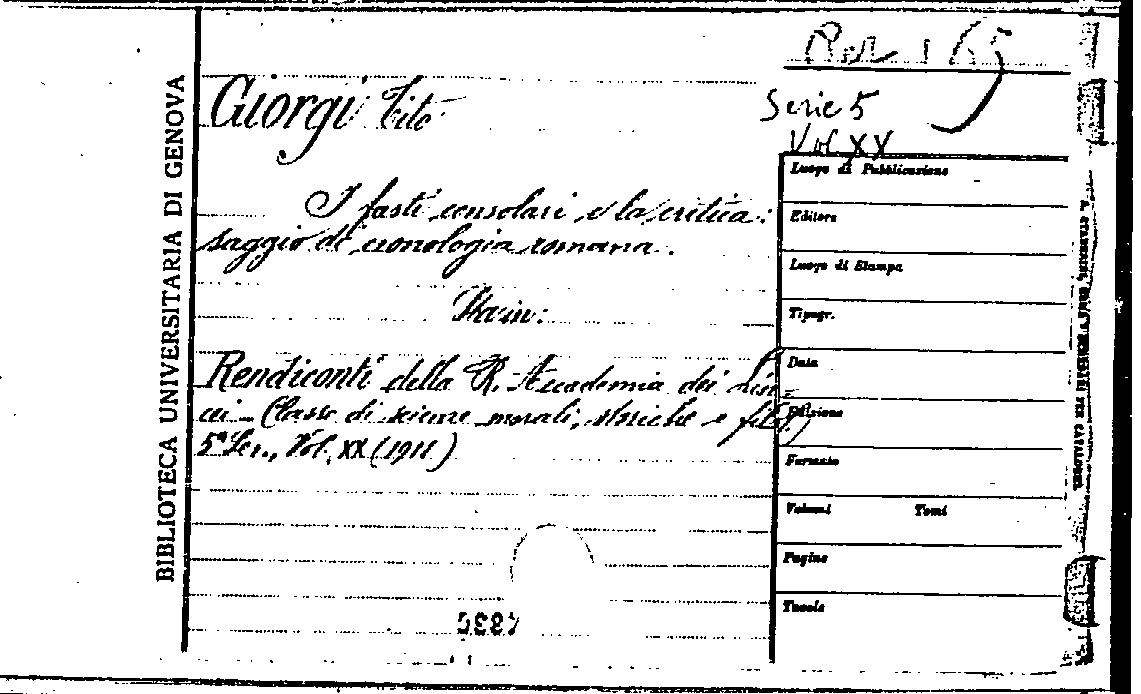 BIBLIOTECA UNIVERSITARIA DI GENOVA
Per 165
Serie 5
Vol XX
Giorgi Tito
I fasti consolari e la critica:
saggio di cronologia romana.
Sta in:
Rendiconti della R. Accademia dei Lin=
cei - Classe di scienze morali, storiche e filol.)
5ª Ser., Vol. XX (1911)
Luogo di Pubblicazione
Editore
Luogo di Stampa
Tipogr.
Data
Edizione
Formato
Volumi Tomi
Pagine
Tavole